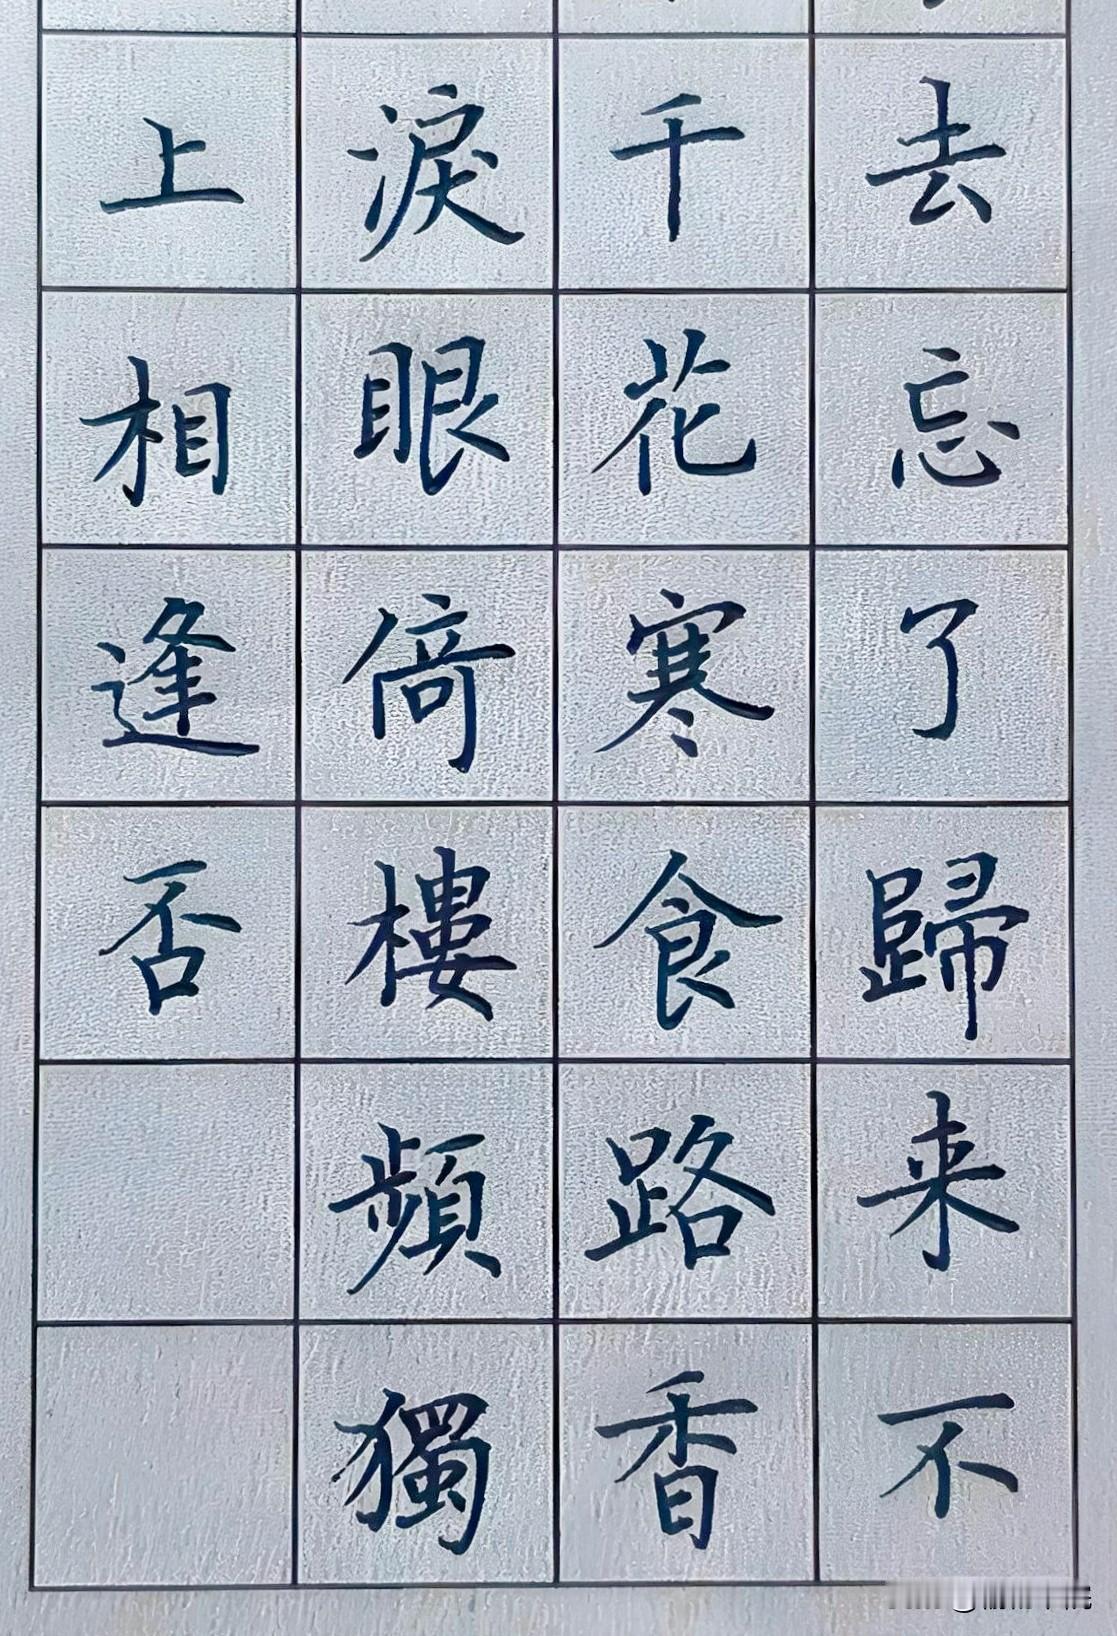 去忘了歸来不
千花寒食路香
淚眼倚樓頻獨
上相逢否